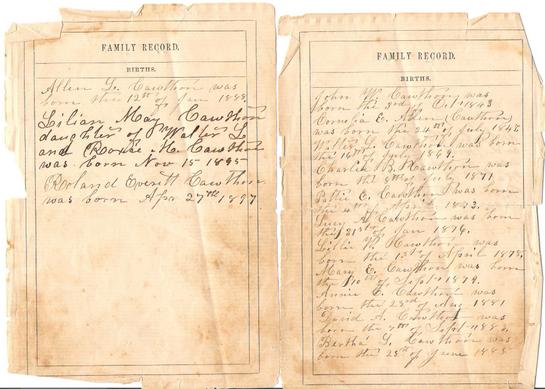 FAMILY RECORD.
BIRTHS.
Allen L. Cawthon was
born the 12th of Jan 1888.
Lilian May Cawthon
daughter of Walter L.
and Roxie M. Cawthon
was born Nov 15 1895
Roland Everitt Cawthon
was born Apr 27th 1897.
FAMILY RECORD.
BIRTHS.
John W. Cawthon was
born the 3rd of Oct 1843
Cornelia E. (Cawthon)
was born the 24th of July
Walter L. Cawthon was born
the of July 1869.
Charlie B. Cawthon was
born the of July 1871
E. Cawthon was born
the 1873.
Lucy A Cawthon was born
the 21st of Jan 1876.
Lillie V. Cawthon was
born the 13th of April 1878.
Mary E. Cawthon was born
the 10th of Sept 1879.
Annie E. Cawthon was
born the 23rd of Aug 1881
David A. Cawthon was
born the of Sept 1883.
Bertha L. Cawthon was
born the 28th of June 1885